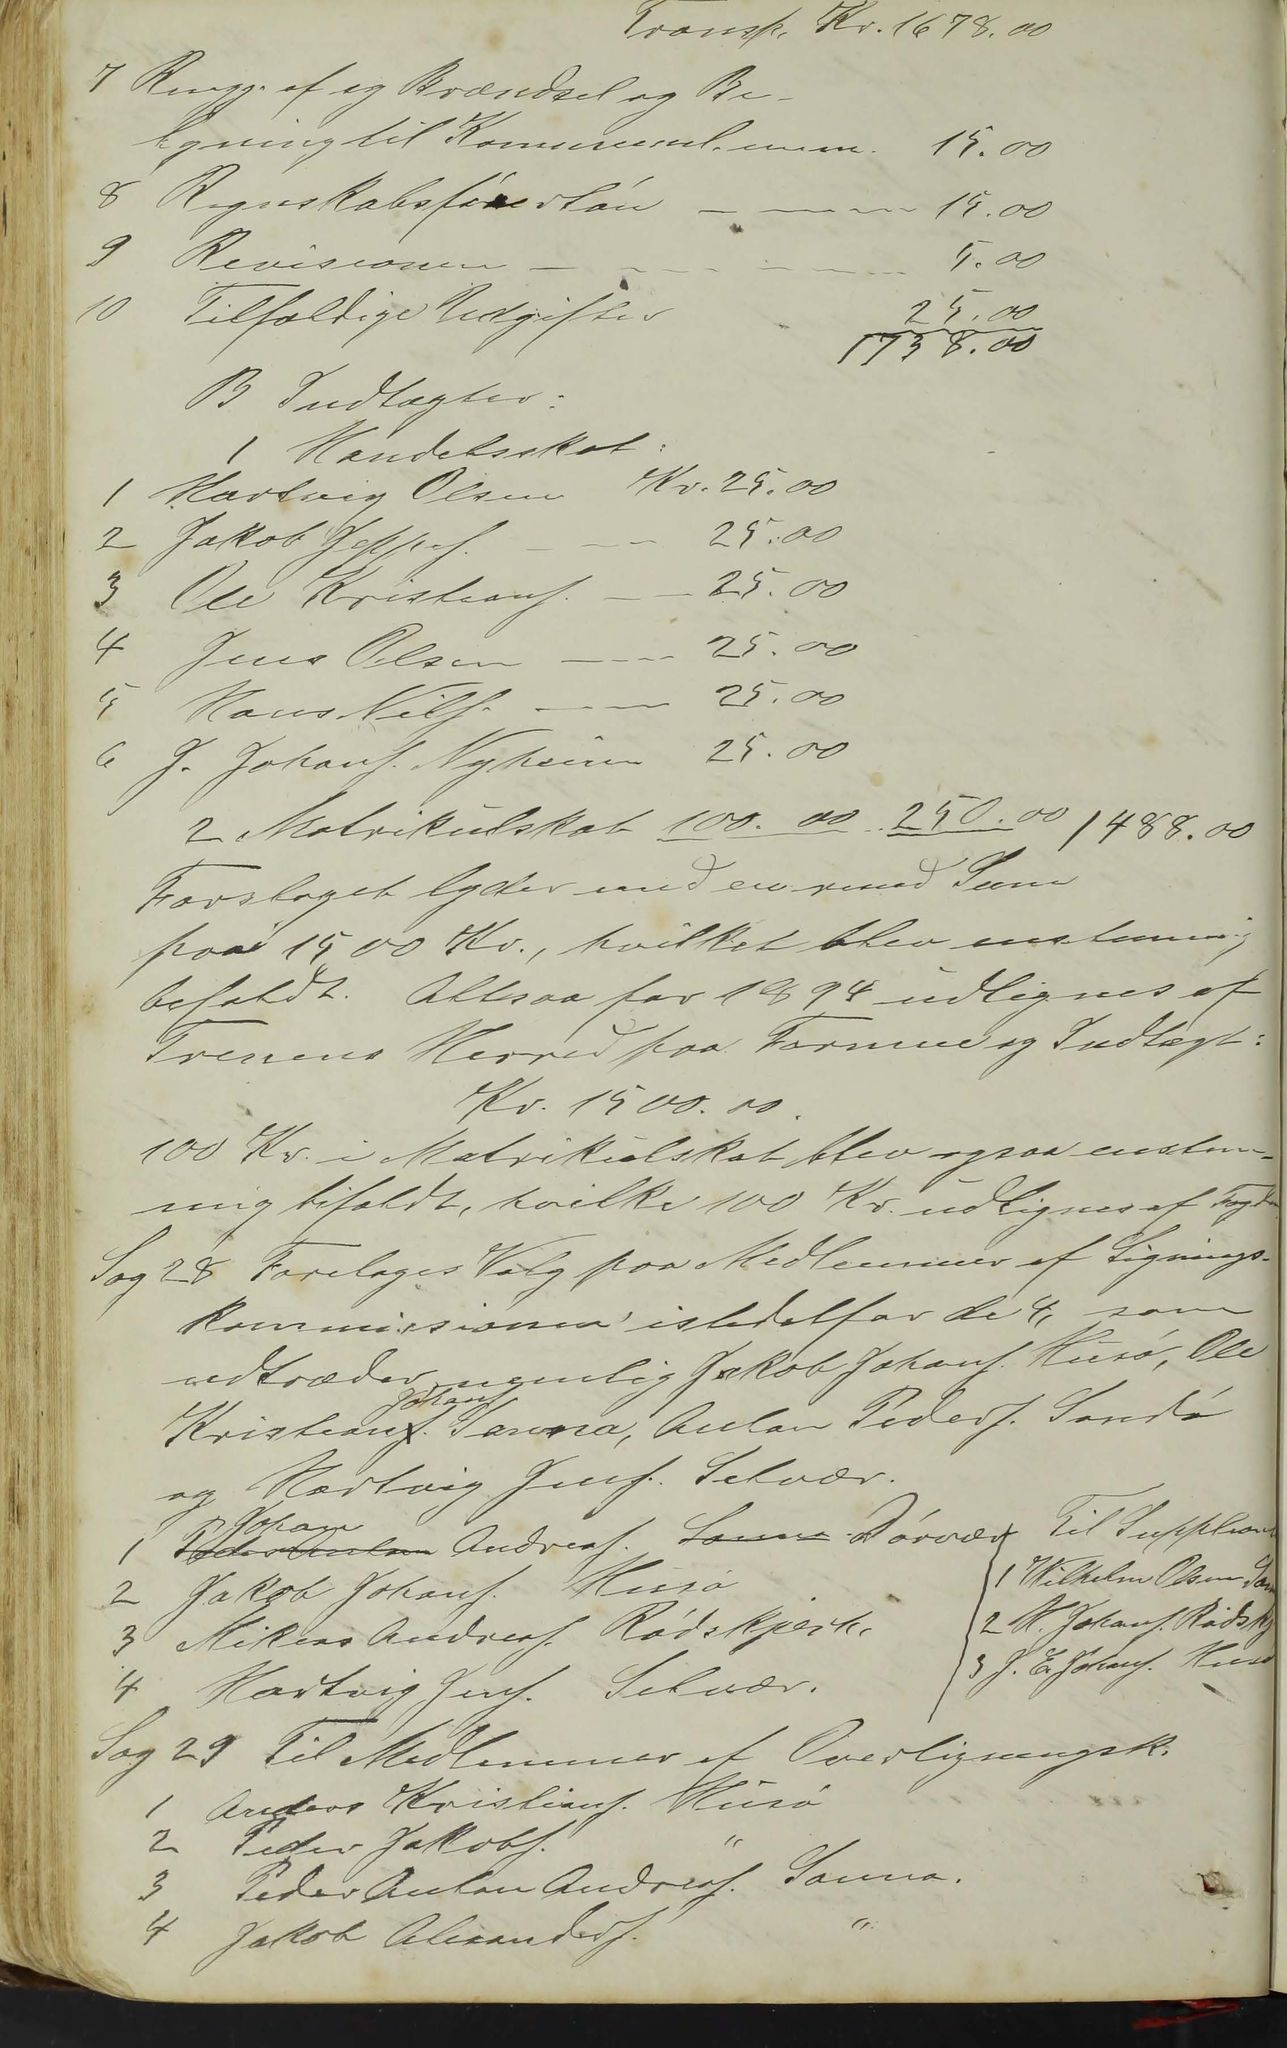 Transp. Kr. 1678.00
7 Rengj. af og Brændsel og Be-
lysning til Kommunel. 15.00
8 Regnskabsførerløn — — — 15.00
9 Revisionen — — — — 5.00
10 Tilfældige Udgifter 25.00
1738.00
B Indtægter:
1 Handelsskat:
1 Hartvig Olsen Kr. 25.00
2 Jakob Jeppes. — — 25.00
3 Ole Kristians. — — 25.00
4 Jens Olsen — — 25.00
5 Hans Nils. — — 25.00
6 J. Johans. Nyheim 25.00
2 Matrikulskat 100.00 250.00 1488.00
Forslaget lyder med en rund Sum
paa 1500 Kr., hvilket blev enstemmig
bifaldt. Altsaa for 1894 udlignes af
Trenens Herred paa Formue og Indtægt:
Kr. 1500.00.
100 Kr. i Matrikulskat blev ogsaa enstem-
mig bifaldt, hvilke 100 Kr. udlignes af
Sag 28 Foretages Valg paa Medlemmer af Lignings-
kommissionen istedetfor de 4, som
udtræder nemlig Jakob Johans. Husø, Ole
Johans
Kristians. Sanna, Anton Peders. Sandø
og Hartvig Jens. Selvær.
Johan
1 Peder Anton Andreas. Sanna Dørvær Til Supplean
2 Jakob Johans. Husø 1 Wilhelm Olsen San
3 Mikeas Andreas. Rødskjerh. 2 H. Johans. Rødskj
4 Hartvig Jens. Selvær. 3 J. E. Johans. Husø
Sag 29 Til Medlemmer af Overligningsk.
1 Anders Kristians. Husø
2 Peder Jakobs. "
3 Peder Anton Andreas. Sanna.
4 Jakob Alexanders. "